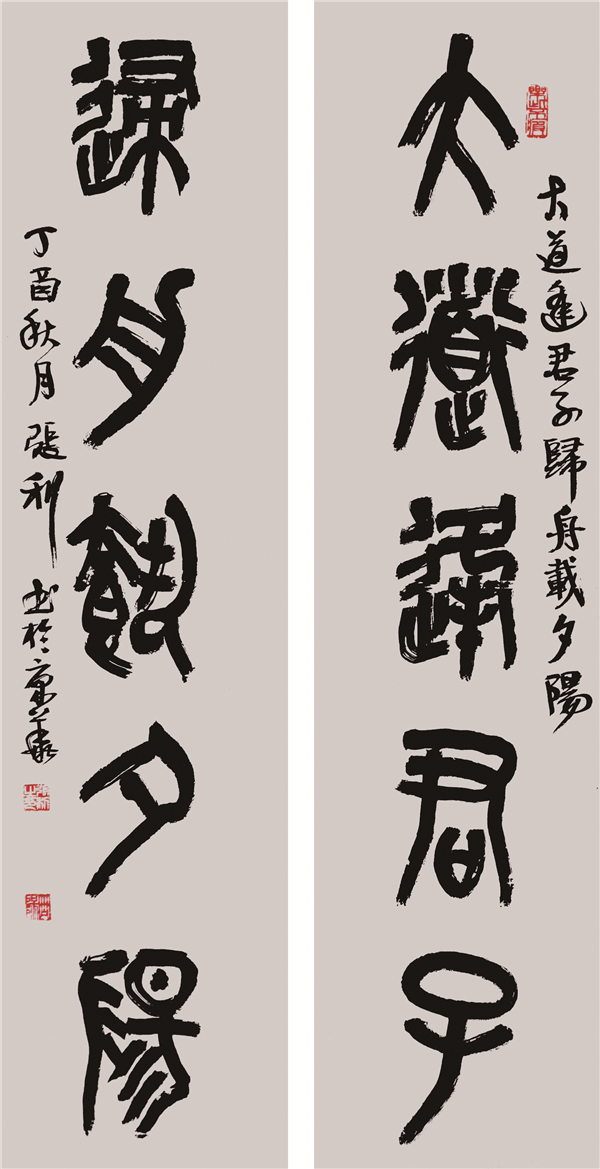 大道逢君子歸舟載夕陽
大道逢君子
歸舟載夕陽
丁酉秋月張利書於京華